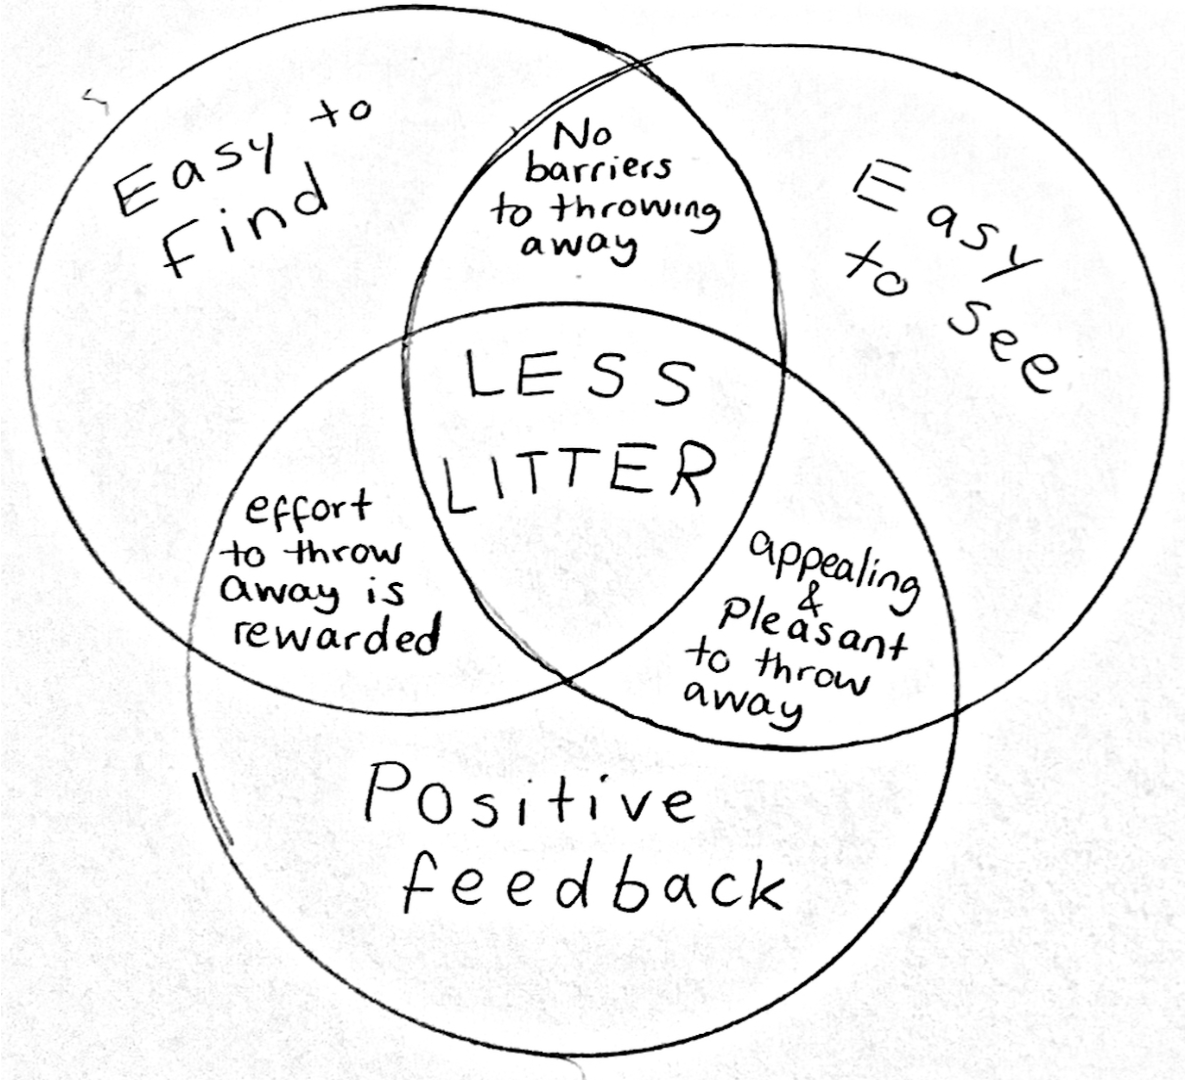 Easy to
Find
No
barriers
to throwing
away
Easy
to see
LESS
LITTER
effort
to throw
away is
rewarded
appealing
&
Pleasant
to throw
away
Positive
feedback